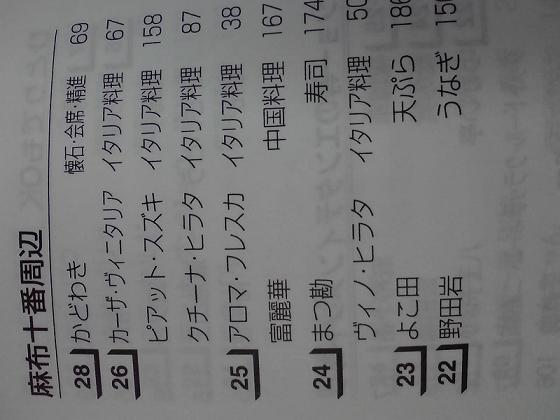 麻布十番周辺
28 かどわき 懐石・会席・精進 69
26 カーザ・ヴィニタリア イタリア料理 67
ピアット・スズキ イタリア料理 158
クチーナ・ヒラタ イタリア料理 87
25 アロマ・フレスカ イタリア料理 38
富麗華 中国料理 167
24 まつ勘 寿司 174
ヴィノ・ヒラタ イタリア料理 50
23 よこ田 天ぷら 186
22 野田岩 うなぎ